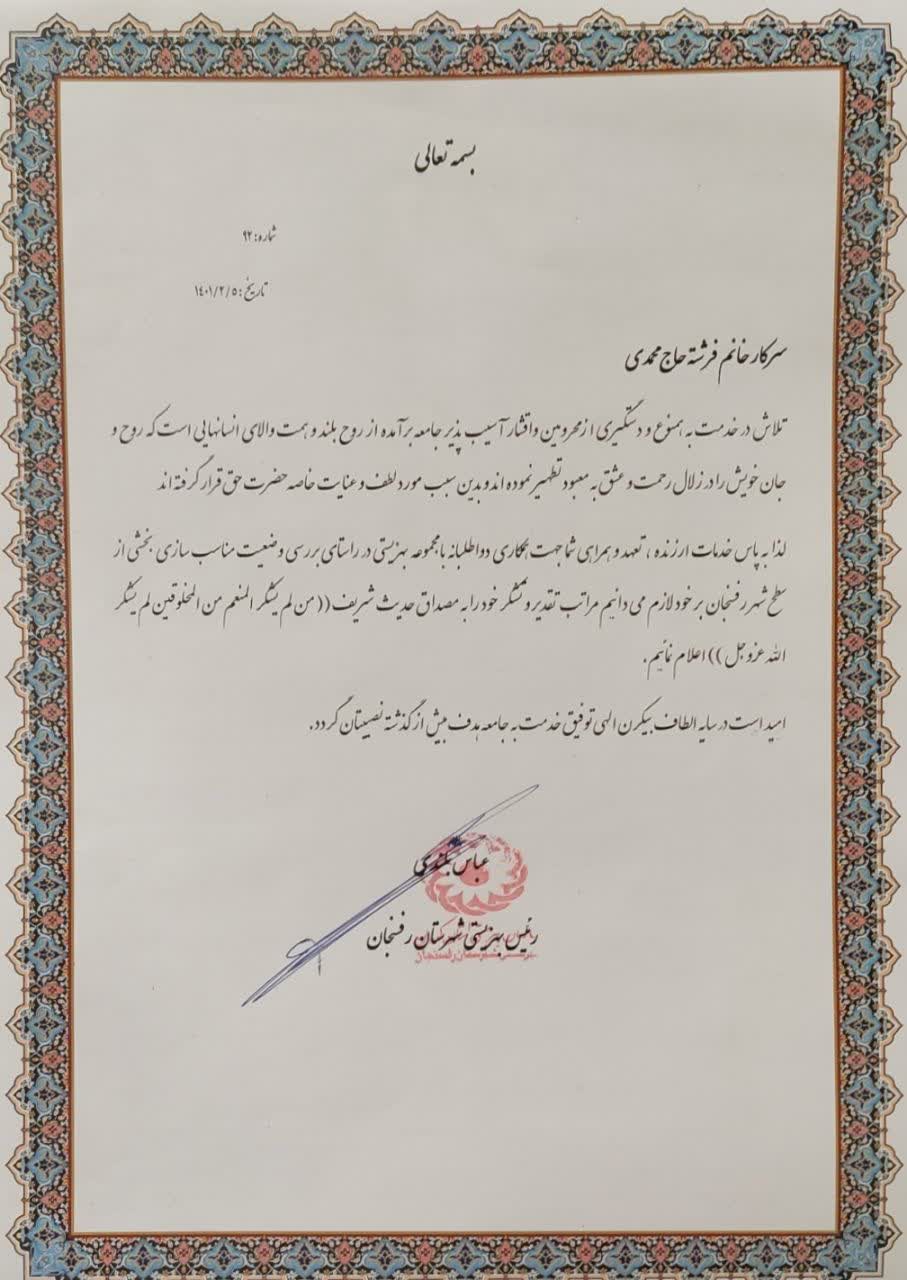 بسمه تعالی
شماره: ۹۲
تاریخ: ۱۴۰۱/۲/۵
سرکار خانم فرشته حاج محمدی
تلاش در خدمت به همنوع و دستگیری از محرومین واقشار آسیب پذیر جامعه برآمده از روح بلند و همت والای انسانهایی است که روح و
جان خویش را در زلال رحمت و عشق به معبود تطهیر نموده اند و بدین سبب مورد لطف و عنایت خاصه حضرت حق قرار گرفته اند
لذا به پاس خدمات ارزنده ، تعهد و همراهی شما جهت همکاری دواطلبانه با مجموعه بهزیستی در راستای بررسی وضعیت مناسب سازی بخشی از
سطح شهر رفسنجان بر خود لازم می دانیم مراتب تقدیر و تشکر خود را به مصداق حدیث شریف (( من لم یشکر المنعم من المخلوقین لم یشکر
الله عزوجل )) اعلام نمائیم.
امید است در سایه الطاف بیکرن الهی توفیق خدمت به جامعه هدف بیش از گذشته نصیبتان گردد.
عباس
رئیس بهزیستی شهرستان رفسنجان
بهزیستی شهرستان رفسنجان